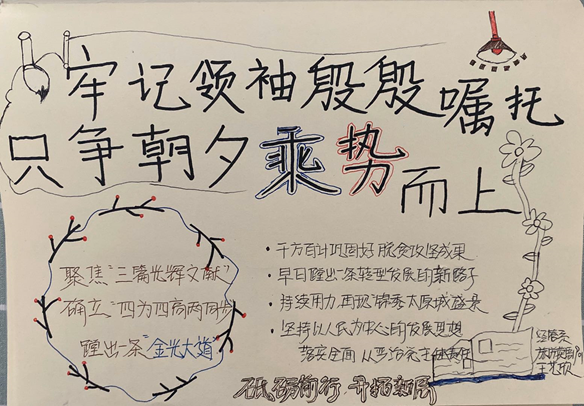 牢记领袖殷殷嘱托
只争朝夕乘势而上
聚焦"三篇光辉文献"
确立"四为四高两同步"
蹚出一条"金光大道"
·千方百计巩固好脱贫攻坚成果
·早日蹚出一条转型发展的新路子
·持续用力再现"锦秀太原城"盛景
·坚持以人民为中心的发展思想
落实全面从严治党主体责任
砥砺前行 开拓新局